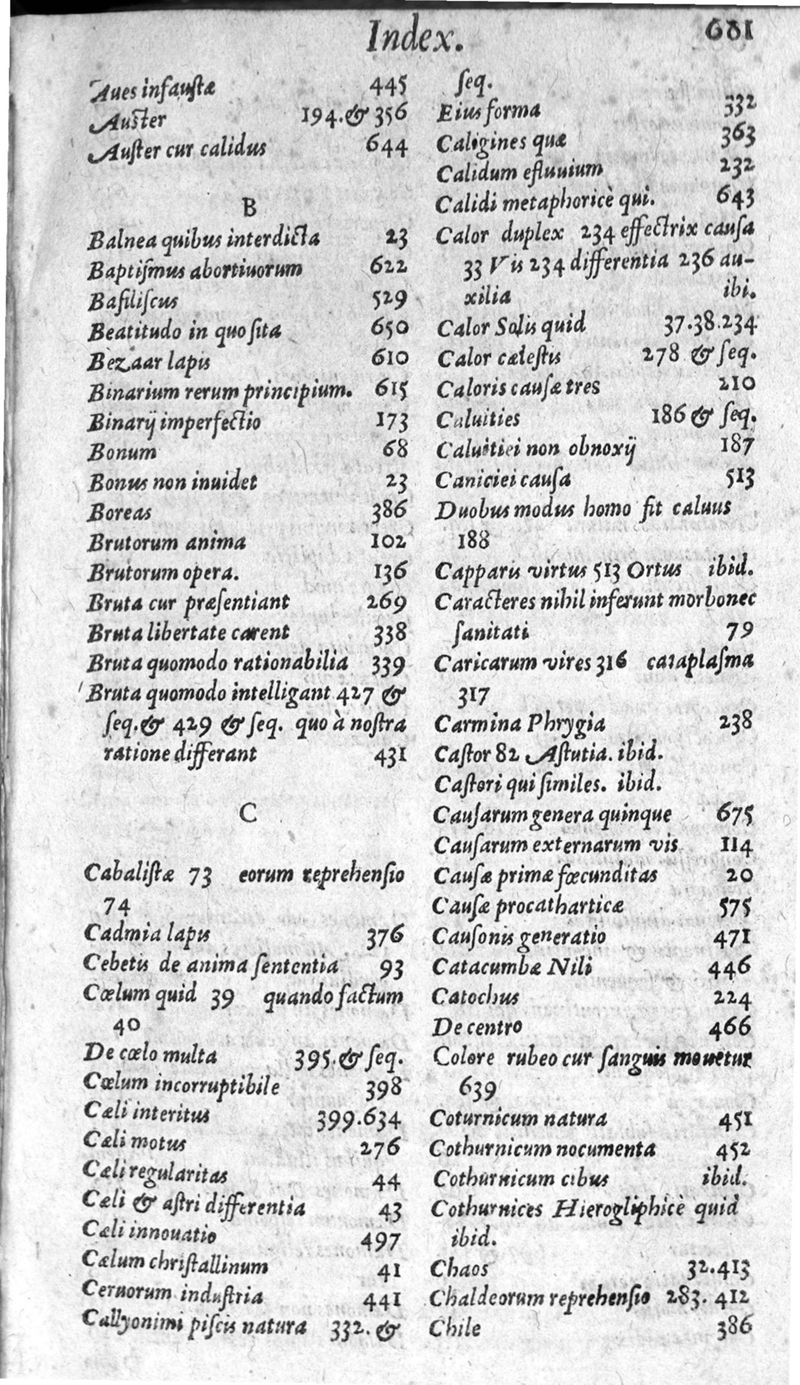 Index. 681
Aues infaustæ 445
Auster 194.& 356
Auster cur calidus 644
B
Balnea quibus interdicta 23
Baptismus abortiuorum 622
Basiliscus 529
Beatitudo in quo sita 650
Bezaar lapis 610
Binarium rerum principium. 615
Binarij imperfectio 173
Bonum 68
Bonus non inuidet 23
Boreas 386
Brutorum anima 102
Brutorum opera. 136
Bruta cur præsentiant 269
Bruta libertate carent 338
Bruta quomodo rationabilia 339
Bruta quomodo intelligant 427 &
seq.& 429 & seq. quo à nostra
ratione differant 431
C
Cabalistæ 73 eorum reprehensio
74
Cadmia lapis 376
Cebetis de anima sententia 93
Cœlum quid 39 quando factum
40
De cœlo multa 395.& seq.
Cœlum incorruptibile 398
Cæli interitus 399.634
Cæli motus 276
Cæli regularitas 44
Cæli & astri differentia 43
Cæli innouatio 497
Cælum christallinum 41
Ceruorum industria 441
Callyonimi piscis natura 332. &
seq.
Eius forma 332
Caligines quæ 363
Calidum efluuium 232
Calidi metaphoricè qui. 643
Calor duplex 234 effectrix causa
33 Vis 234 differentia 236 au-
xilia ibi.
Calor Solis quid 37.38.234
Calor cælestis 278 & seq.
Caloris causæ tres 210
Caluities 186 & seq.
Caluitiei non obnoxij 187
Caniciei causa 513
Duobus modus homo fit caluus
188
Capparis virtus 513 Ortus ibid.
Caracteres nihil inferunt morbo nec
sanitati 79
Caricarum vires 316 cataplasma
317
Carmina Phrygia 238
Castor 82 Astutia. ibid.
Castori qui similes. ibid.
Causarum genera quinque 675
Causarum externarum vis 114
Causæ primæ fœcunditas 20
Causæ procatharticæ 575
Causonis generatio 471
Catacumbæ Nili 446
Catochus 224
De centro 466
Colore rubeo cur sanguis mouetur
639
Coturnicum natura 451
Cothurnicum nocumenta 452
Cothurnicum cibus ibid.
Cothurnices Hierogliphicè quid
ibid.
Chaos 32.413
Chaldeorum reprehensio 283. 412
Chile 386